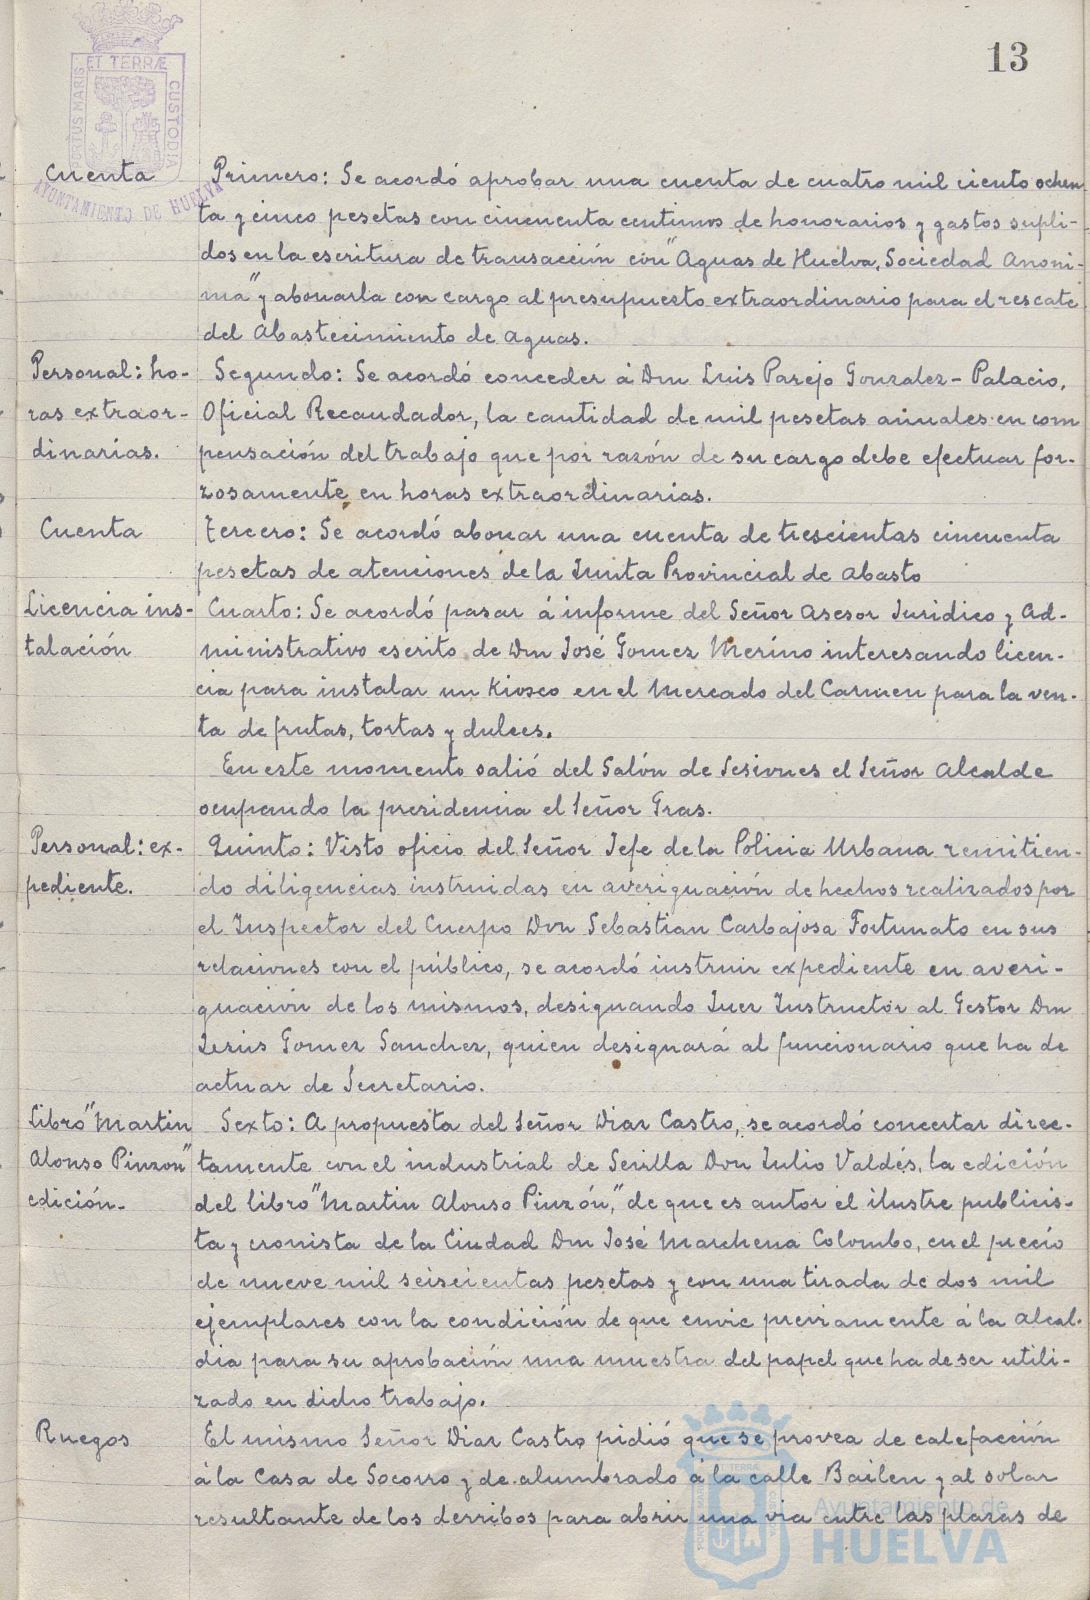 13
PORTUS MARIS ET TERRÆ CUSTODIA
AYUNTAMIENTO DE HUELVA
Cuenta
Primero: Se acordó aprobar una cuenta de cuatro mil ciento ochen-
ta y cinco pesetas con cincuenta centimos de honorarios y gastos supli-
dos en la escritura de transacción con "Aguas de Huelva, Sociedad Anoni-
ma" y abonarla con cargo al presupuesto extraordinario para el rescate
del Abastecimiento de Aguas.
Personal: ho-
ras extraor-
dinarias.
Segundo: Se acordó conceder á Don Luis Parejo Gonzalez-Palacio,
Oficial Recaudador, la cantidad de mil pesetas anuales en com
pensación del trabajo que por razón de su cargo debe efectuar for-
zosamente en horas extraordinarias.
Cuenta
Tercero: Se acordó abonar una cuenta de trescientas cincuenta
pesetas de atenciones de la Junta Provincial de Abasto
Licencia ins-
talación
Cuarto: Se acordó pasar á informe del Señor Asesor Juridico y Ad-
ministrativo escrito de Don José Gomez Merino interesando licen-
cia para instalar un Kiosco en el Mercado del Carmen para la ven-
ta de frutas, tortas y dulces.
En este momento salió del Salón de Sesiones el Señor Alcalde
ocupando la presidencia el Señor Gras.
Personal: ex-
pediente.
Quinto: Visto oficio del Señor Jefe de la Policia Urbana remitien-
do diligencias instruidas en averiguación de hechos realizados por
el Inspector del Cuerpo Don Sebastian Carbajosa Fortunato en sus
relaciones con el público, se acordó instruir expediente en averi-
guación de los mismos, designando Juez Instructor al Gestor Don
Jesús Gomez Sanchez, quien designará al funcionario que ha de
actuar de Secretario.
Libro "Martin
Alonso Pinzon"
edición.
Sexto: A propuesta del Señor Diaz Castro, se acordó concertar direc-
tamente con el industrial de Sevilla Don Julio Valdés, la edición
del libro "Martin Alonso Pinzón," de que es autor el ilustre publicis-
ta y cronista de la Ciudad Don José Marchena Colombo, en el precio
de nueve mil seiscientas pesetas y con una tirada de dos mil
ejemplares con la condición de que envie previamente á la Alcal-
dia para su aprobación una muestra del papel que ha de ser utili-
zado en dicho trabajo.
Ruegos
El mismo Señor Diaz Castro pidió que se provea de calefacción
á la Casa de Socorro y de alumbrado á la calle Bailen y al solar
resultante de los derribos para abrir una via entre las plazas de
Ayuntamiento de
HUELVA